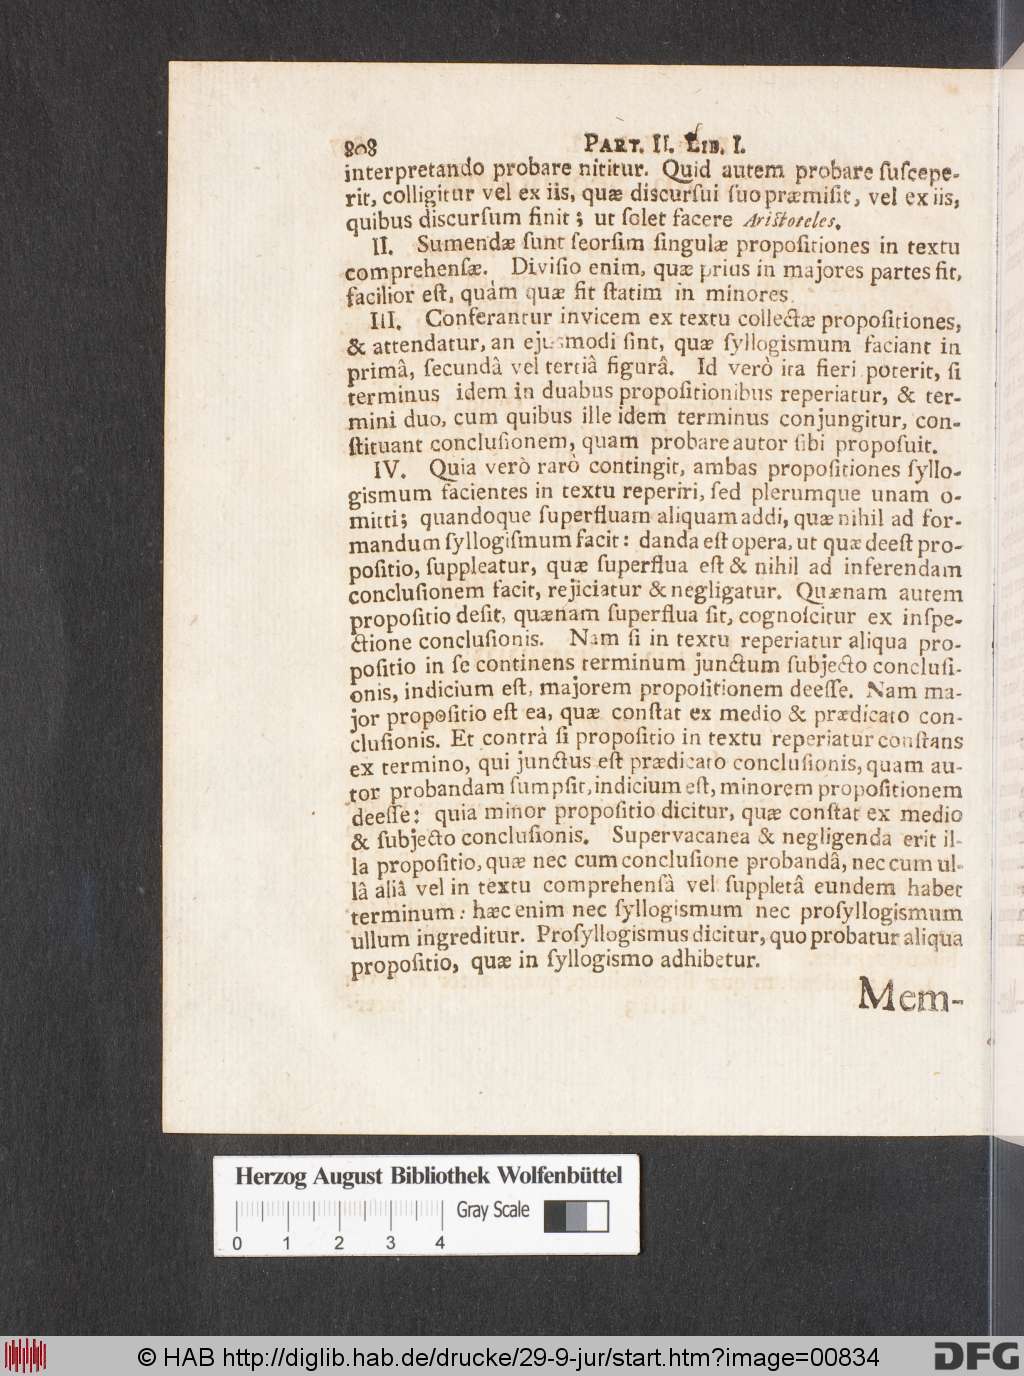 808 PART. II. LIB. I.
interpretando probare nititur. Quid autem probare ſuſcepe-
rit, colligitur vel ex iis, quæ diſcurſui ſuo præmiſit, vel ex iis,
quibus diſcurſum finit; ut ſolet facere Ariſtoteles.
II. Sumendæ ſunt ſeorſim ſingulæ propoſitiones in textu
comprehenſæ. Diviſio enim, quæ prius in majores partes fit,
facilior eſt, quàm quæ fit ſtatim in minores.
III. Conferantur invicem ex textu collectæ propoſitiones,
& attendatur, an ejusmodi ſint, quæ ſyllogismum faciant in
primâ, ſecundâ vel tertiâ figurâ. Id verò ita fieri poterit, ſi
terminus idem in duabus propoſitionibus reperiatur, & ter-
mini duo, cum quibus ille idem terminus conjungitur, con-
ſtituant concluſionem, quam probare autor ſibi propoſuit.
IV. Quia verò rarò contingit, ambas propoſitiones ſyllo-
gismum facientes in textu reperiri, ſed plerumque unam o-
mitti; quandoque ſuperfluam aliquam addi, quæ nihil ad for-
mandum ſyllogiſmum facit: danda eſt opera, ut quæ deeſt pro-
poſitio, ſuppleatur, quæ ſuperflua eſt & nihil ad inferendam
concluſionem facit, rejiciatur & negligatur. Quænam autem
propoſitio deſit, quænam ſuperflua ſit, cognoſcitur ex inſpe-
ctione concluſionis. Nam ſi in textu reperiatur aliqua pro-
poſitio in ſe continens terminum junctum ſubjecto concluſi-
onis, indicium eſt, majorem propoſitionem deeſſe. Nam ma-
jor propoſitio eſt ea, quæ conſtat ex medio & prædicato con-
cluſionis. Et contrà ſi propoſitio in textu reperiatur conſtans
ex termino, qui junctus eſt prædicato concluſionis, quam au-
tor probandam ſumpſit, indicium eſt, minorem propoſitionem
deeſſe: quia minor propoſitio dicitur, quæ conſtat ex medio
& ſubjecto concluſionis. Supervacanea & negligenda erit il-
la propoſitio, quæ nec cum concluſione probandâ, nec cum ul-
lâ aliâ vel in textu comprehenſâ vel ſuppletâ eundem habet
terminum: hæc enim nec ſyllogismum nec proſyllogismum
ullum ingreditur. Proſyllogismus dicitur, quo probatur aliqua
propoſitio, quæ in ſyllogismo adhibetur.
Mem-
Herzog August Bibliothek Wolfenbüttel
Gray Scale
0 1 2 3 4
© HAB http://diglib.hab.de/drucke/29-9-jur/start.htm?image=00834
DFG